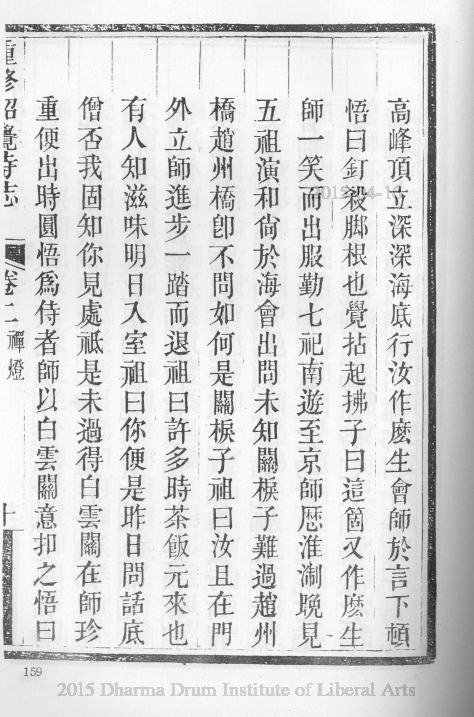 高峰頂立深深海底行汝作麽生會師於言下頓
悟曰釘殺脚根也覺拈起拂子曰這箇又作麽生
師一笑而出服勤七祀南遊至京師歴淮淛晚見
五祖演和尚於海會出問未知關棙子難過趙州
橋趙州橋卽不問如何是關棙子祖曰汝且在門
外立師進步一踏而退祖曰許多時茶飯元來也
有人知滋味明日入室祖曰你便是昨日問話底
僧否我固知你見處祗是未過得白雲關在師珍
重便出時圓悟爲侍者師以白雲關意扣之悟曰
重修昭覺寺志 卷二 禪燈 十
159
2015 Dharma Drum Institute of Liberal Arts